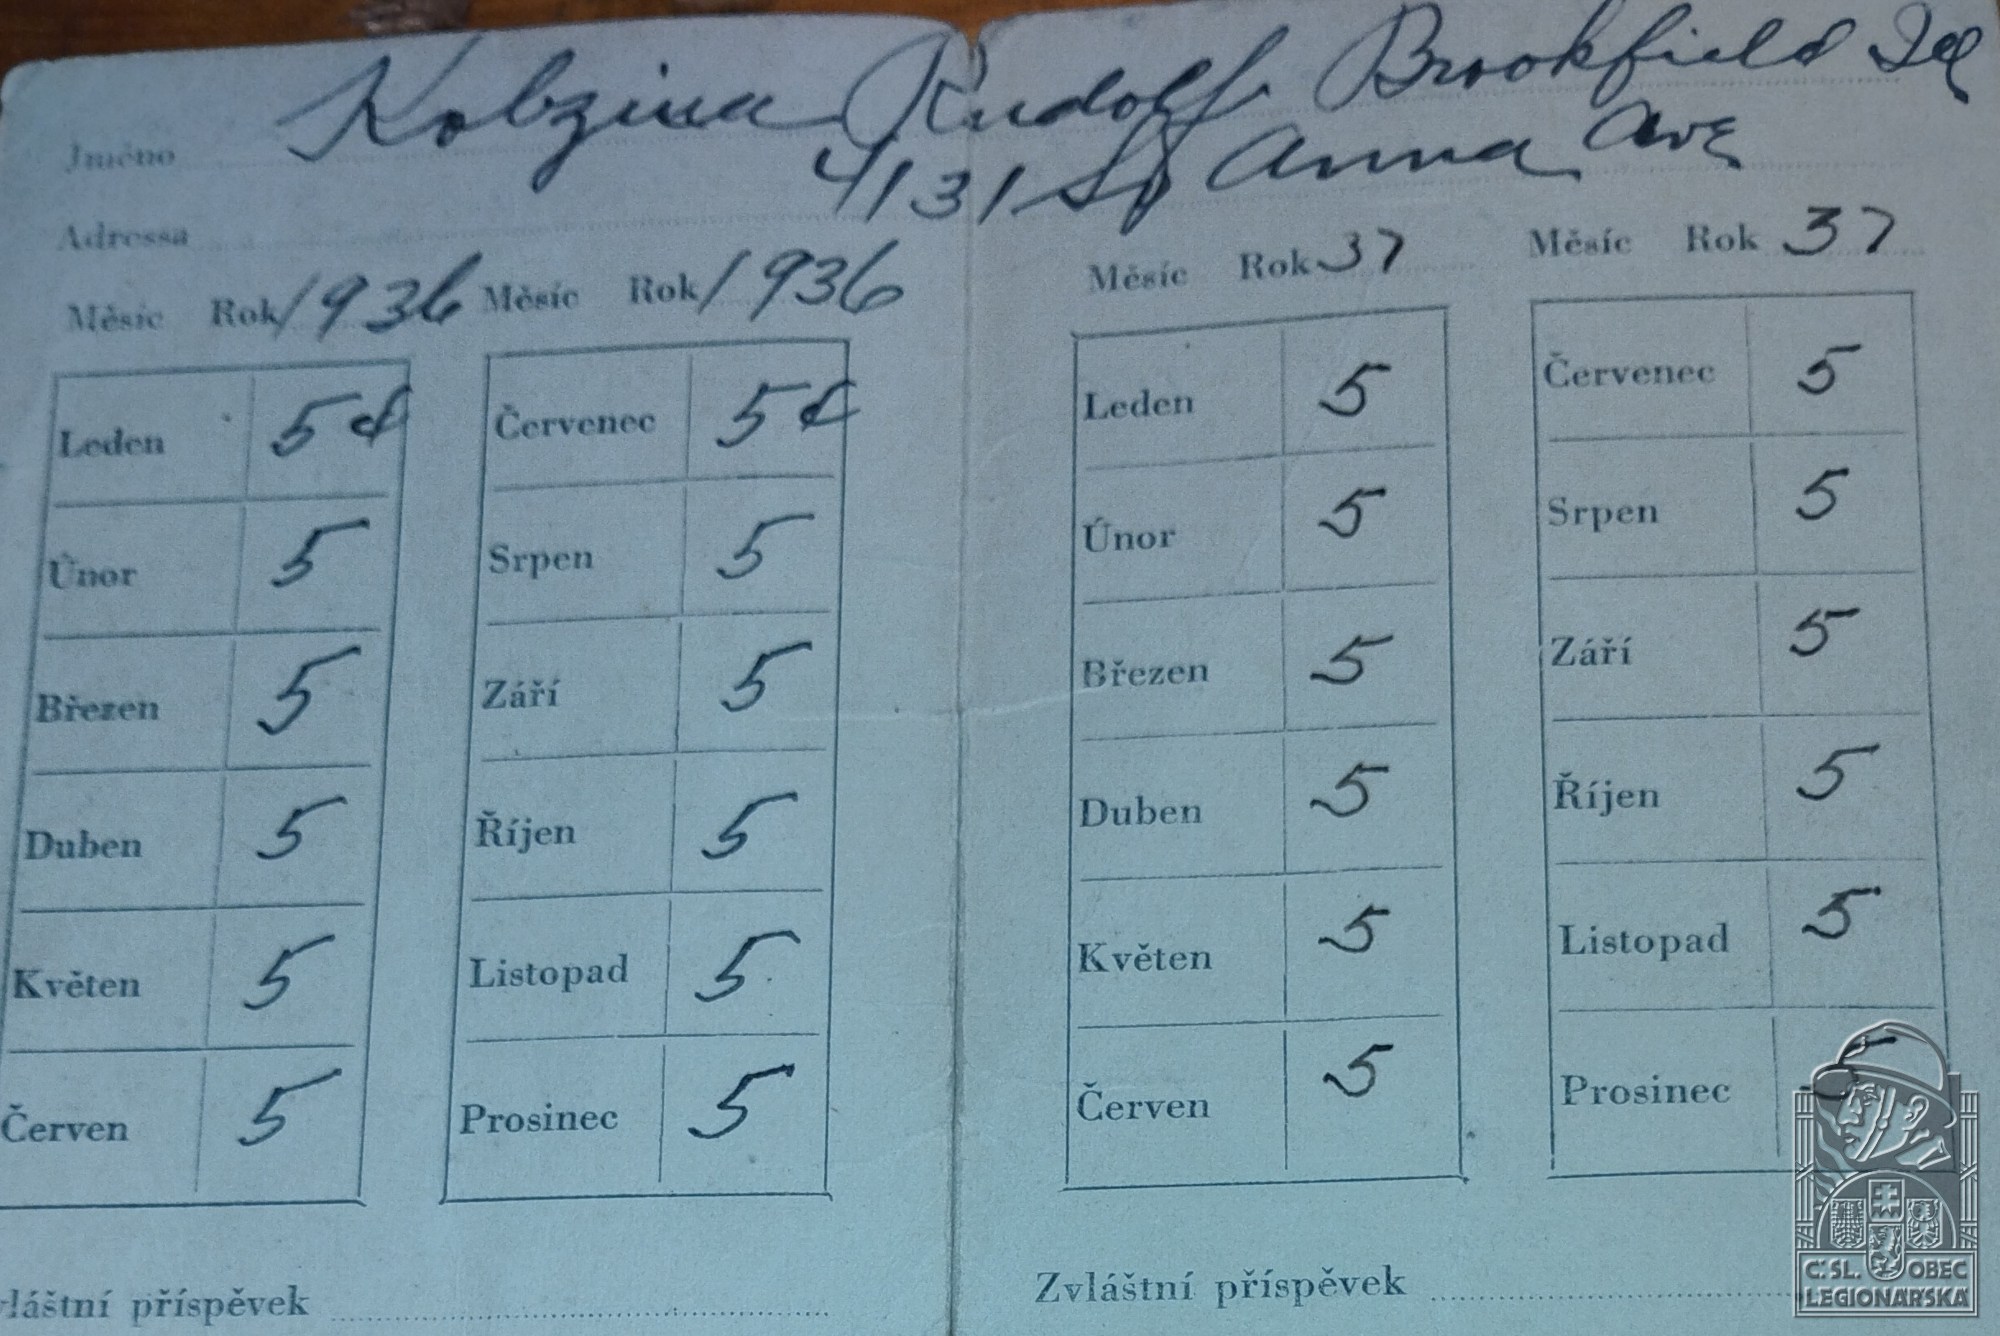 Jméno Kobzina Rudolf Brookfield Ill
Adressa 4131 St Anna Ave
Měsíc Rok 1936 Měsíc Rok 1936 Měsíc Rok 37 Měsíc Rok 37
Leden 5¢ Červenec 5¢ Leden 5 Červenec 5
Únor 5 Srpen 5 Únor 5 Srpen 5
Březen 5 Září 5 Březen 5 Září 5
Duben 5 Říjen 5 Duben 5 Říjen 5
Květen 5 Listopad 5 Květen 5 Listopad 5
Červen 5 Prosinec 5 Červen 5 Prosinec 5
vláštní příspěvek Zvláštní příspěvek
Č.SL. OBEC
LEGIONÁŘSKÁ